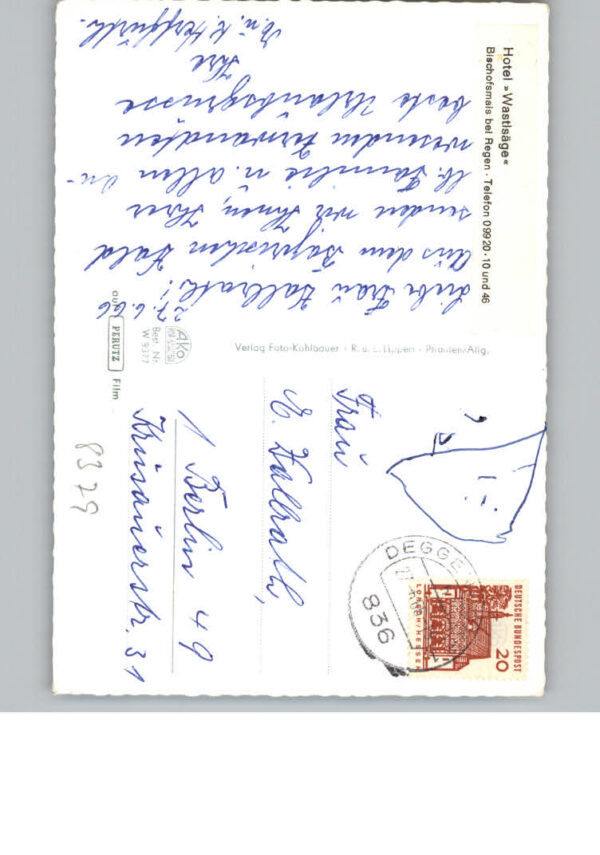 Hotel »Wastlsäge«
Bischofsmais bei Regen · Telefon 09920-10 und 46
27.6.66
Liebe Frau Vollrath!
Aus dem Bayrischen Wald
senden wir Ihnen, Ihrer
lb. Familie u. allen An-
wesenden Verwandten
beste Urlaubsgrüsse
Ihre
Verlag Foto-Kuhlbauer - R. u. L. Lippert -
AKO
Best. Nr.
W 9377
auf PERUTZ Film
Frau
E. Vollrath,
1 Berlin 49
31
8379
DEGGE
836
DEUTSCHE BUNDESPOST
20
LORSCH/HESSEN